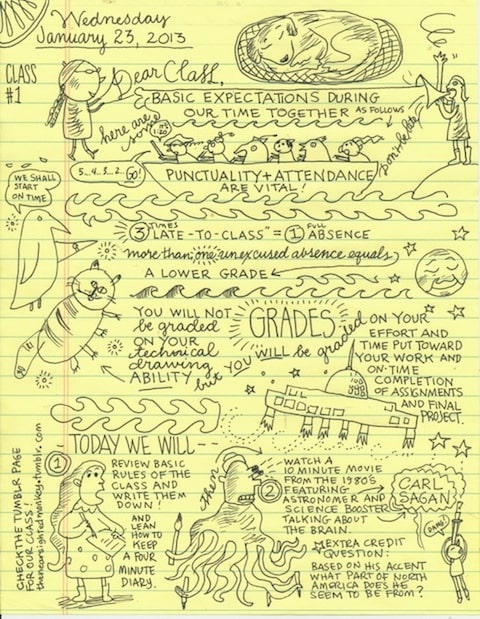 Wednesday
January 23, 2013
CLASS
#1
Dear Class,
here are some
BASIC EXPECTATIONS DURING
OUR TIME TOGETHER AS FOLLOWS
don't be late
1:20
5...4...3...2... GO!
PUNCTUALITY + ATTENDANCE
ARE VITAL!
WE SHALL
START
ON TIME
3 TIMES "LATE-TO-CLASS" = 1 FULL ABSENCE
more than one unexcused absence equals
A LOWER GRADE
YOU WILL NOT
be graded
ON YOUR
technical
drawing
ABILITY but
GRADES
YOU WILL be graded ON YOUR
EFFORT AND
TIME PUT TOWARD
YOUR WORK AND
ON-TIME
COMPLETION
OF ASSIGNMENTS
AND FINAL
PROJECT.
TODAY WE WILL--
1
REVIEW BASIC
RULES OF THE
CLASS AND
WRITE THEM
DOWN!
AND
LEARN
HOW TO
KEEP
A FOUR
MINUTE
DIARY.
then
2
WATCH A
10 MINUTE MOVIE
FROM THE 1980'S
FEATURING
ASTRONOMER AND
SCIENCE BOOSTER
TALKING ABOUT
THE BRAIN.
CARL
SAGAN
DANG!
EXTRA CREDIT
QUESTION:
BASED ON HIS ACCENT
WHAT PART OF NORTH
AMERICA DOES HE
SEEM TO BE FROM?
CHECK THE TUMBLR PAGE
FOR OUR CLASS
thenearsightedmonkey.tumblr.com